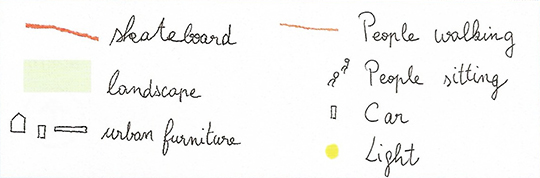 skateboard
landscape
urban furniture
People walking
People sitting
Car
Light